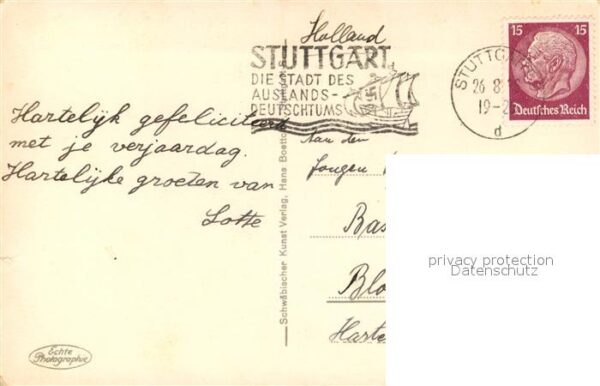 Holland
STUTTGART,
DIE STADT DES
AUSLANDS-
DEUTSCHTUMS
STUTTG
26 8
19-2
d
15 15
Deutsches Reich
Hartelijk gefeliciteerd
met je verjaardag.
Hartelijke groeten van
Lotte
Aan den
Jongen
Bas
Blo
Harte
Schwäbischer Kunst Verlag, Hans Boettc
Echte
Photographie
privacy protection
Datenschutz